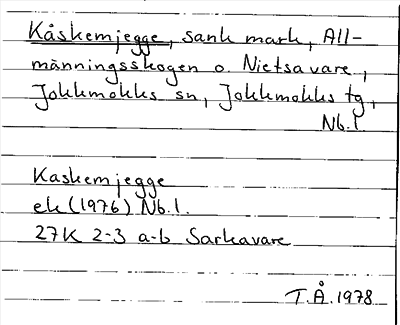 Kåskemjegge, sank mark, All-
männingsskogen o. Nietsavare,
Jokkmokks sn, Jokkmokks tg,
Nb.l.
Kaskemjegge
ek (1976) Nb.l.
27K 2-3 a-b Sarkavare
T.Å. 1978